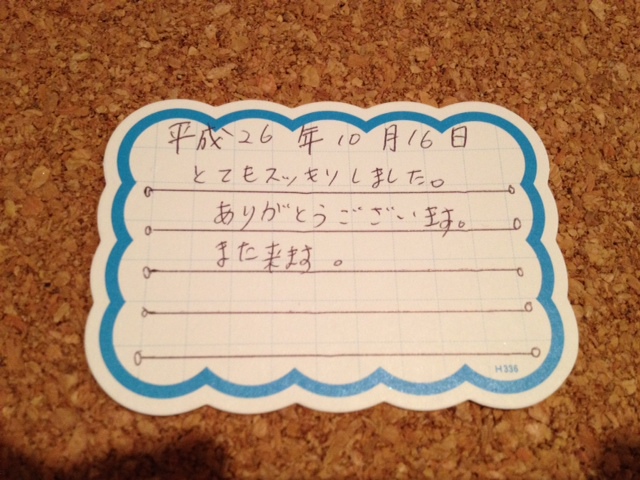 平成26年10月16日
とてもスッキリしました。
ありがとうございます。
また来ます。
H336